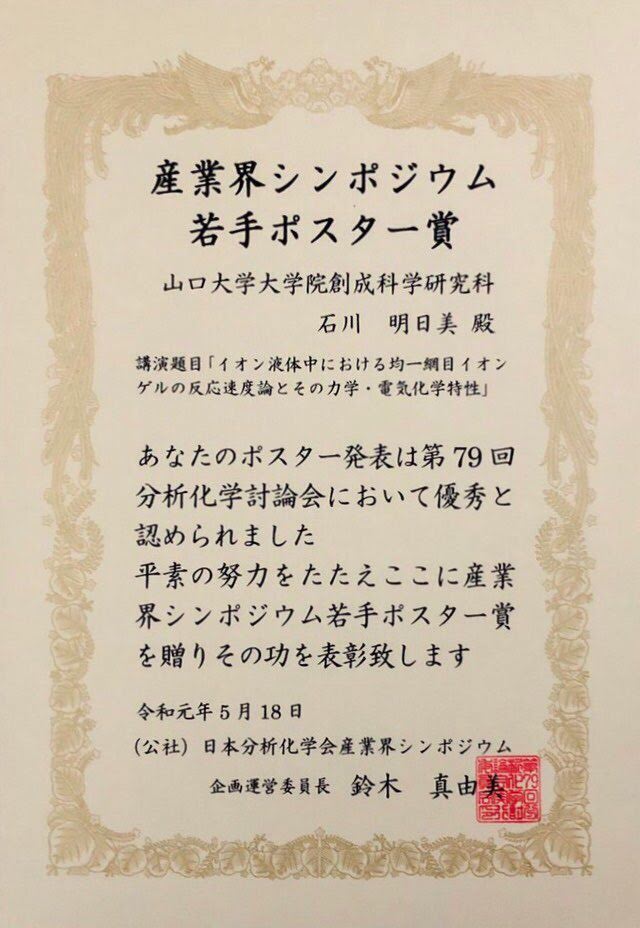 産業界シンポジウム
若手ポスター賞
山口大学大学院創成科学研究科
石川　明日美 殿
講演題目「イオン液体中における均一網目イオン
ゲルの反応速度論とその力学・電気化学特性」
あなたのポスター発表は第 79 回
分析化学討論会において優秀と
認められました
平素の努力をたたえここに産業
界シンポジウム若手ポスター賞
を贈りその功を表彰致します
令和元年 5 月 18 日
（公社）日本分析化学会産業界シンポジウム
企画運営委員長　鈴木　真由美